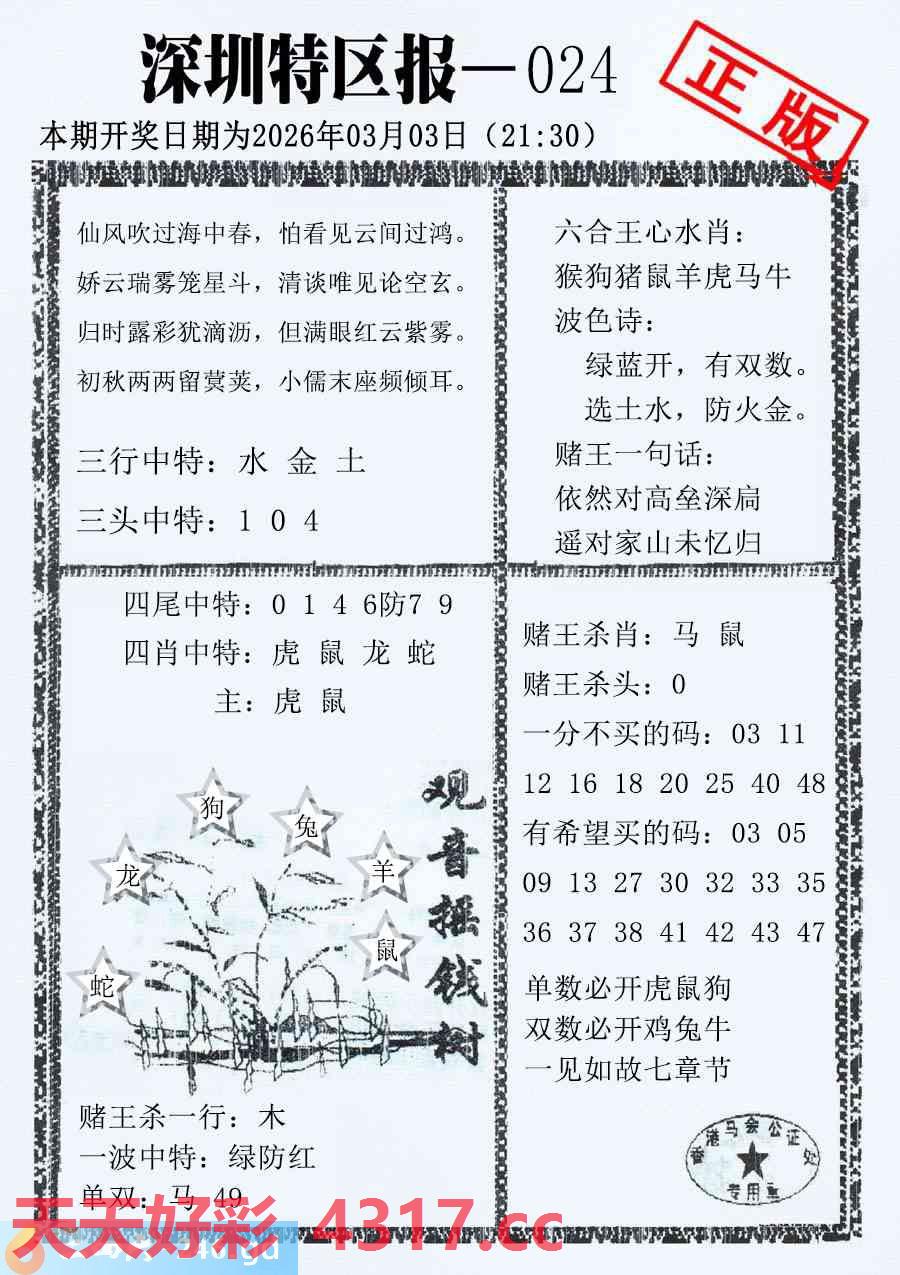 深圳特区报—024
正版
本期开奖日期为2026年03月03日（21:30）
仙风吹过海中春，怕看见云间过鸿。
娇云瑞雾笼星斗，清谈唯见论空玄。
归时露彩犹滴沥，但满眼红云紫雾。
初秋两两留蓂荚，小儒末座频倾耳。
三行中特：水 金 土
三头中特：1 0 4
六合王心水肖：
猴狗猪鼠羊虎马牛
波色诗：
绿蓝开，有双数。
选土水，防火金。
赌王一句话：
依然对高垒深扃
遥对家山未忆归
四尾中特：0 1 4 6防7 9
四肖中特：虎 鼠 龙 蛇
主：虎 鼠
狗
兔
龙
羊
鼠
蛇
观音摇钱树
赌王杀一行：木
一波中特：绿防红
单双：马 49
赌王杀肖：马 鼠
赌王杀头：0
一分不买的码：03 11
12 16 18 20 25 40 48
有希望买的码：03 05
09 13 27 30 32 33 35
36 37 38 41 42 43 47
单数必开虎鼠狗
双数必开鸡兔牛
一见如故七章节
香港马会公证处
专用章
天天好彩 4317.cc